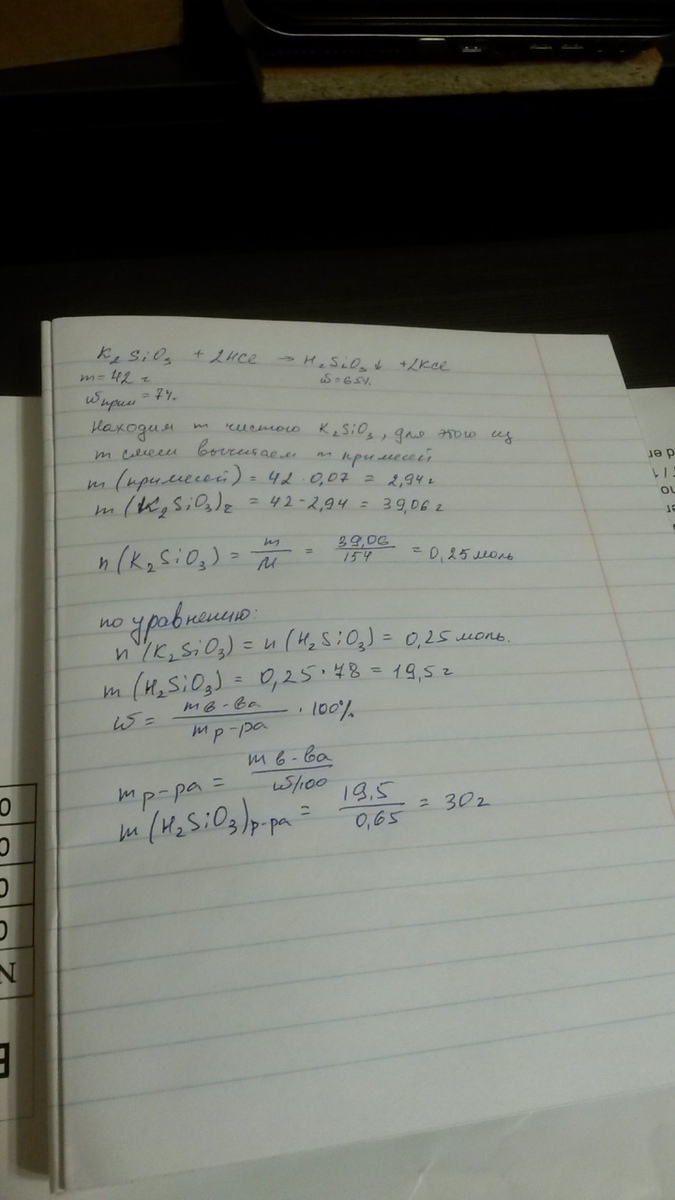 K₂SiO₃ + 2HCl → H₂SiO₃↓ + 2KCl
m = 42 г
ω = 65%
ωприм = 7%
Находим m чистого K₂SiO₃, для этого из
m смеси вычитаем m примесей
m (примесей) = 42 · 0,07 = 2,94 г
m (K₂SiO₃)г = 42 - 2,94 = 39,06 г
n (K₂SiO₃) = m/M = 39,06/154 = 0,25 моль
по уравнению:
n (K₂SiO₃) = n (H₂SiO₃) = 0,25 моль.
m (H₂SiO₃) = 0,25 · 78 = 19,5 г
ω = mв-ва/mр-ра · 100%
mр-ра = mв-ва/ω/100
m (H₂SiO₃)р-ра = 19,5/0,65 = 30 г
0
0
0
0
N